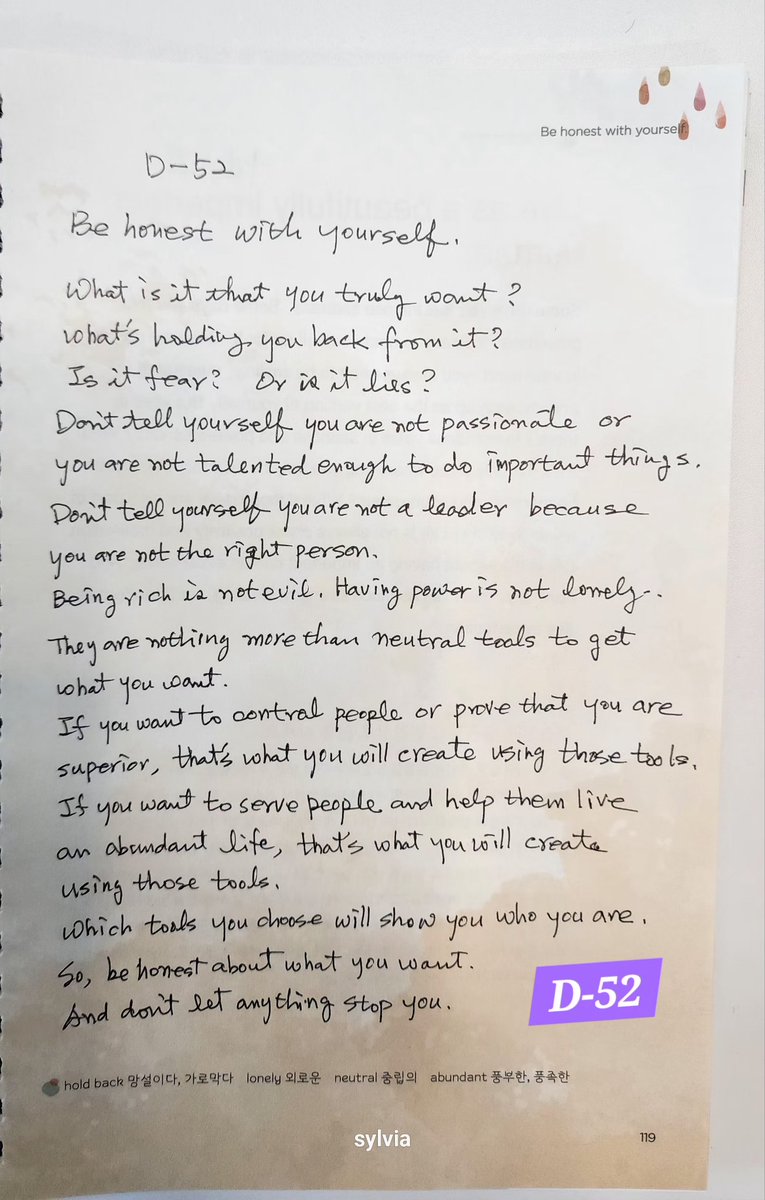 Be honest with yourself.
D-52
Be honest with yourself.
What is it that you truly want?
What's holding you back from it?
Is it fear? Or is it lies?
Don't tell yourself you are not passionate or
you are not talented enough to do important things.
Don't tell yourself you are not a leader because
you are not the right person.
Being rich is not evil. Having power is not lonely.
They are nothing more than neutral tools to get
what you want.
If you want to control people or prove that you are
superior, that's what you will create using those tools.
If you want to serve people and help them live
an abundant life, that's what you will create
using those tools.
Which tools you choose will show you who you are.
So, be honest about what you want.
And don't let anything stop you.
D-52
hold back 망설이다, 가로막다 lonely 외로운 neutral 중립의 abundant 풍부한, 풍족한
sylvia
119